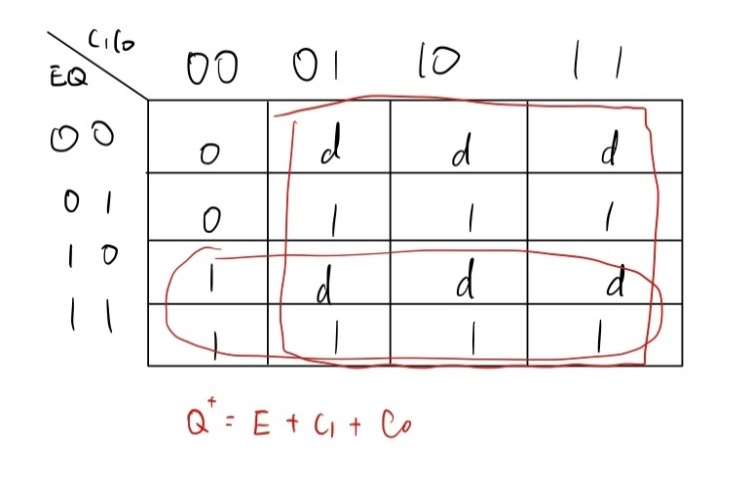 C₁C₀
EQ 00 01 10 11
00 0 d d d
01 0 1 1 1
10 1 d d d
11 1 1 1 1
Q⁺ = E + C₁ + C₀